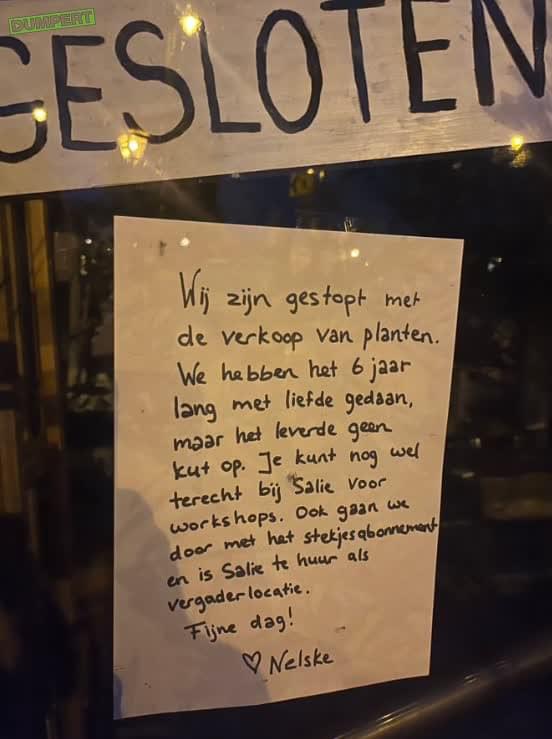 DUMPERT
GESLOTEN
Wij zijn gestopt met
de verkoop van planten.
We hebben het 6 jaar
lang met liefde gedaan,
maar het leverde geen
kut op. Je kunt nog wel
terecht bij Salie voor
workshops. Ook gaan we
door met het stekjesabonnement
en is Salie te huur als
vergaderlocatie.
Fijne dag!
♡ Nelske